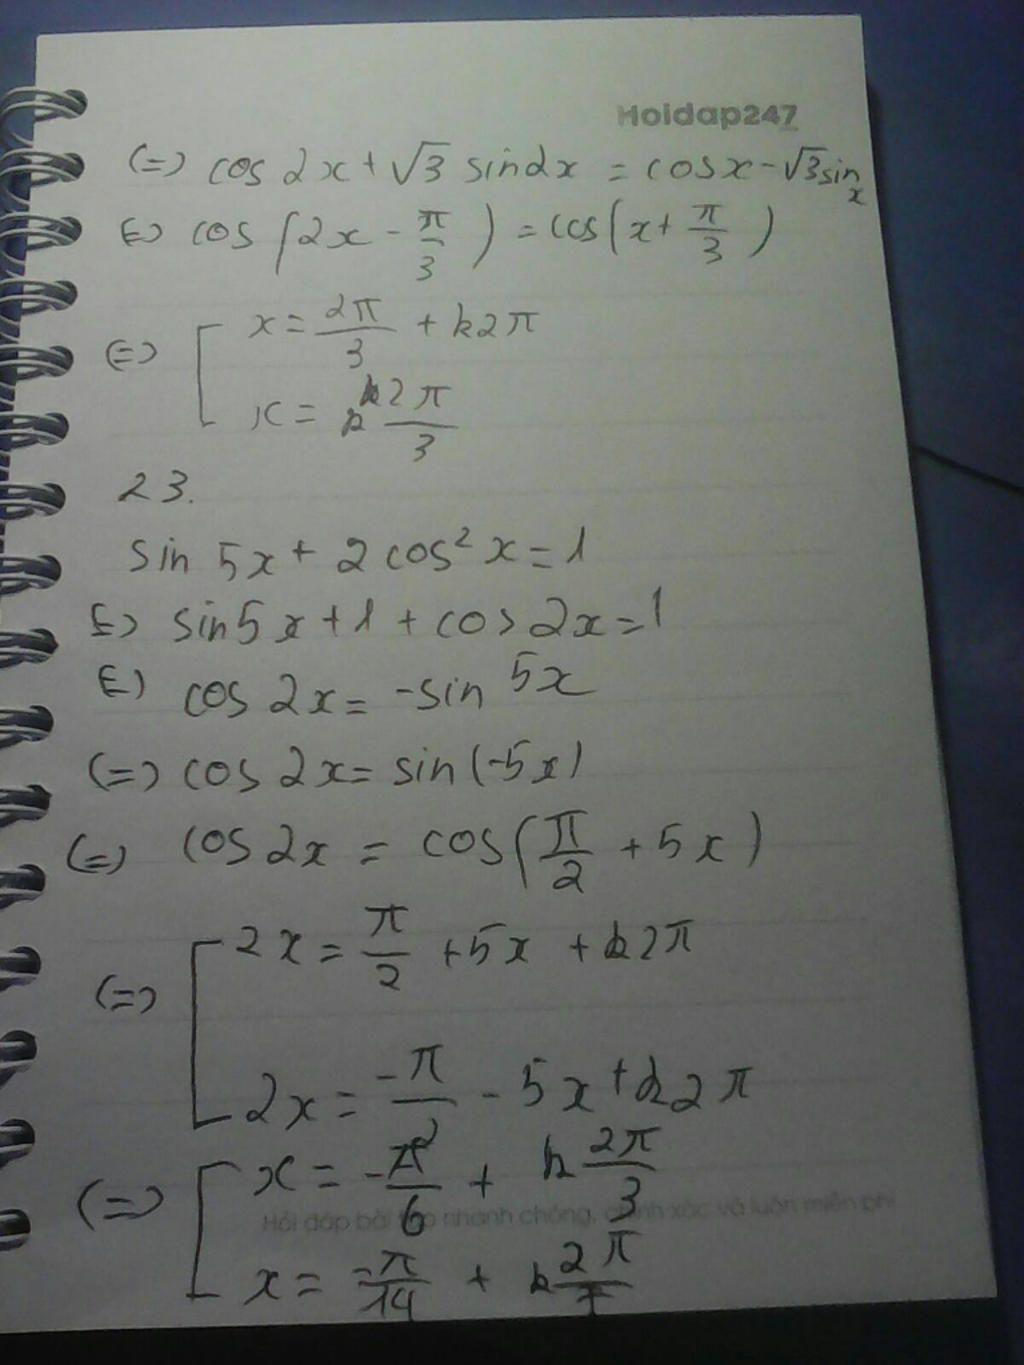 Hoidap247
(=) cos 2x + √3 sin2x = cosx - √3 sin x
(=) cos (2x - π/3) = cos (x + π/3)
(=) [ x = 2π/3 + k2π
x = k 2π/3
23.
sin 5x + 2 cos² x = 1
(=) sin5x + 1 + cos 2x = 1
(=) cos 2x = -sin 5x
(=) cos 2x = sin(-5x)
(=) cos 2x = cos(π/2 + 5x)
(=) [ 2x = π/2 + 5x + k2π
2x = -π/2 - 5x + k2π
(=) [ x = -π/6 + k 2π/3
Hỏi đáp bài tập nhanh chóng, chính xác và luôn miễn phí
x = -π/14 + k 2π/7